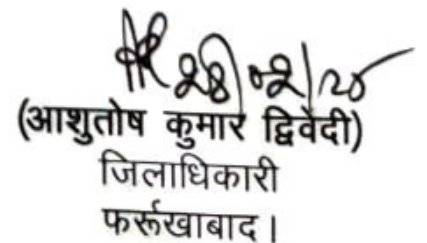 28/02/25
(आशुतोष कुमार द्विवेदी)
जिलाधिकारी
फर्रूखाबाद।